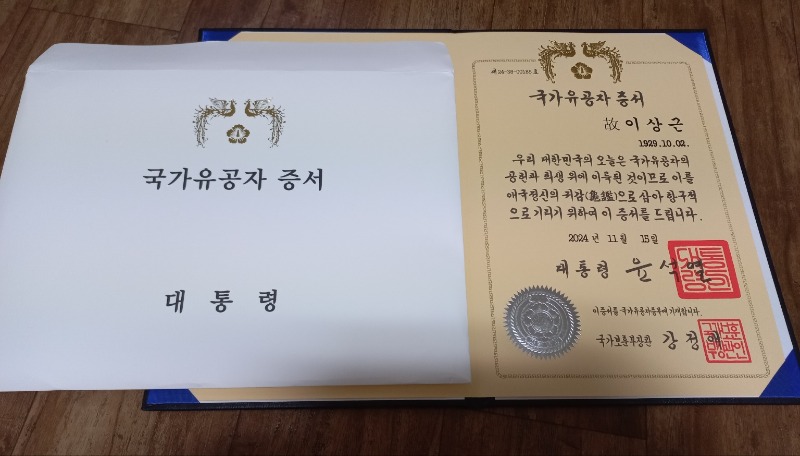 국가유공자 증서
대 통 령
제 24-28-22185 호
국가유공자 증서
故 이 상 근
1929.10.02.
우리 대한민국의 오늘은 국가유공자의
공헌과 희생 위에 이룩된 것이므로 이를
애국정신의 귀감(龜鑑)으로 삼아 항구적
으로 기리기 위하여 이 증서를 드립니다.
2024 년 11 월 15일
대통령 윤석열
이 증서를 국가유공자증부에 기재합니다.
국가보훈부장관 강정애